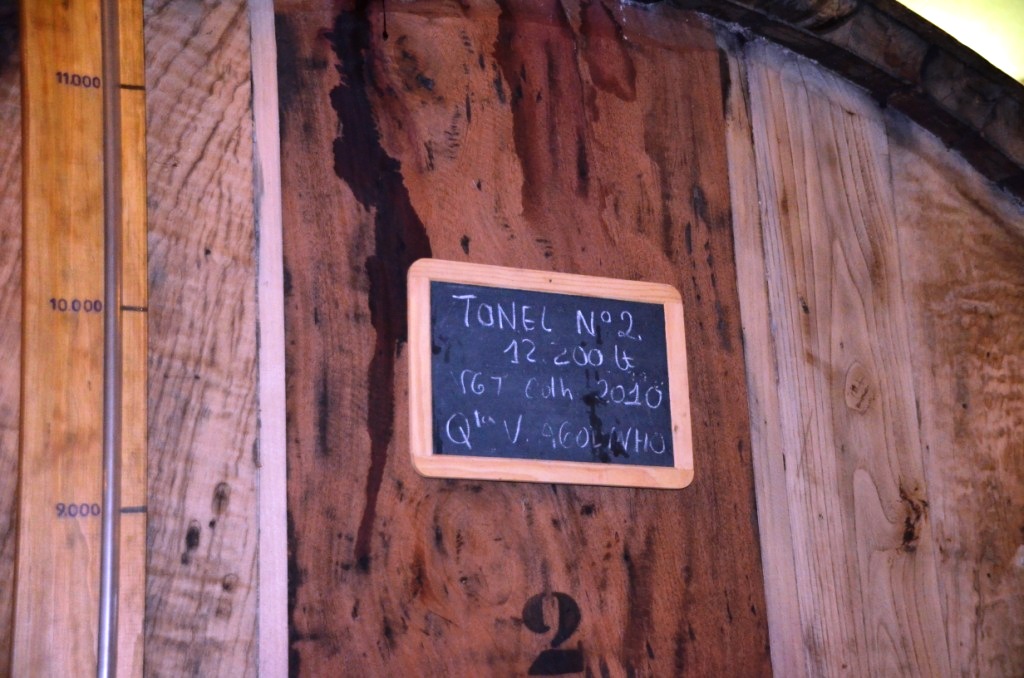 11.000
10.000
9.000
TONEL Nº 2.
12.200 lt
VGT Colh 2010
Qta V. AGODINHO
2